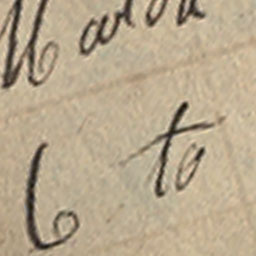 March
6 to